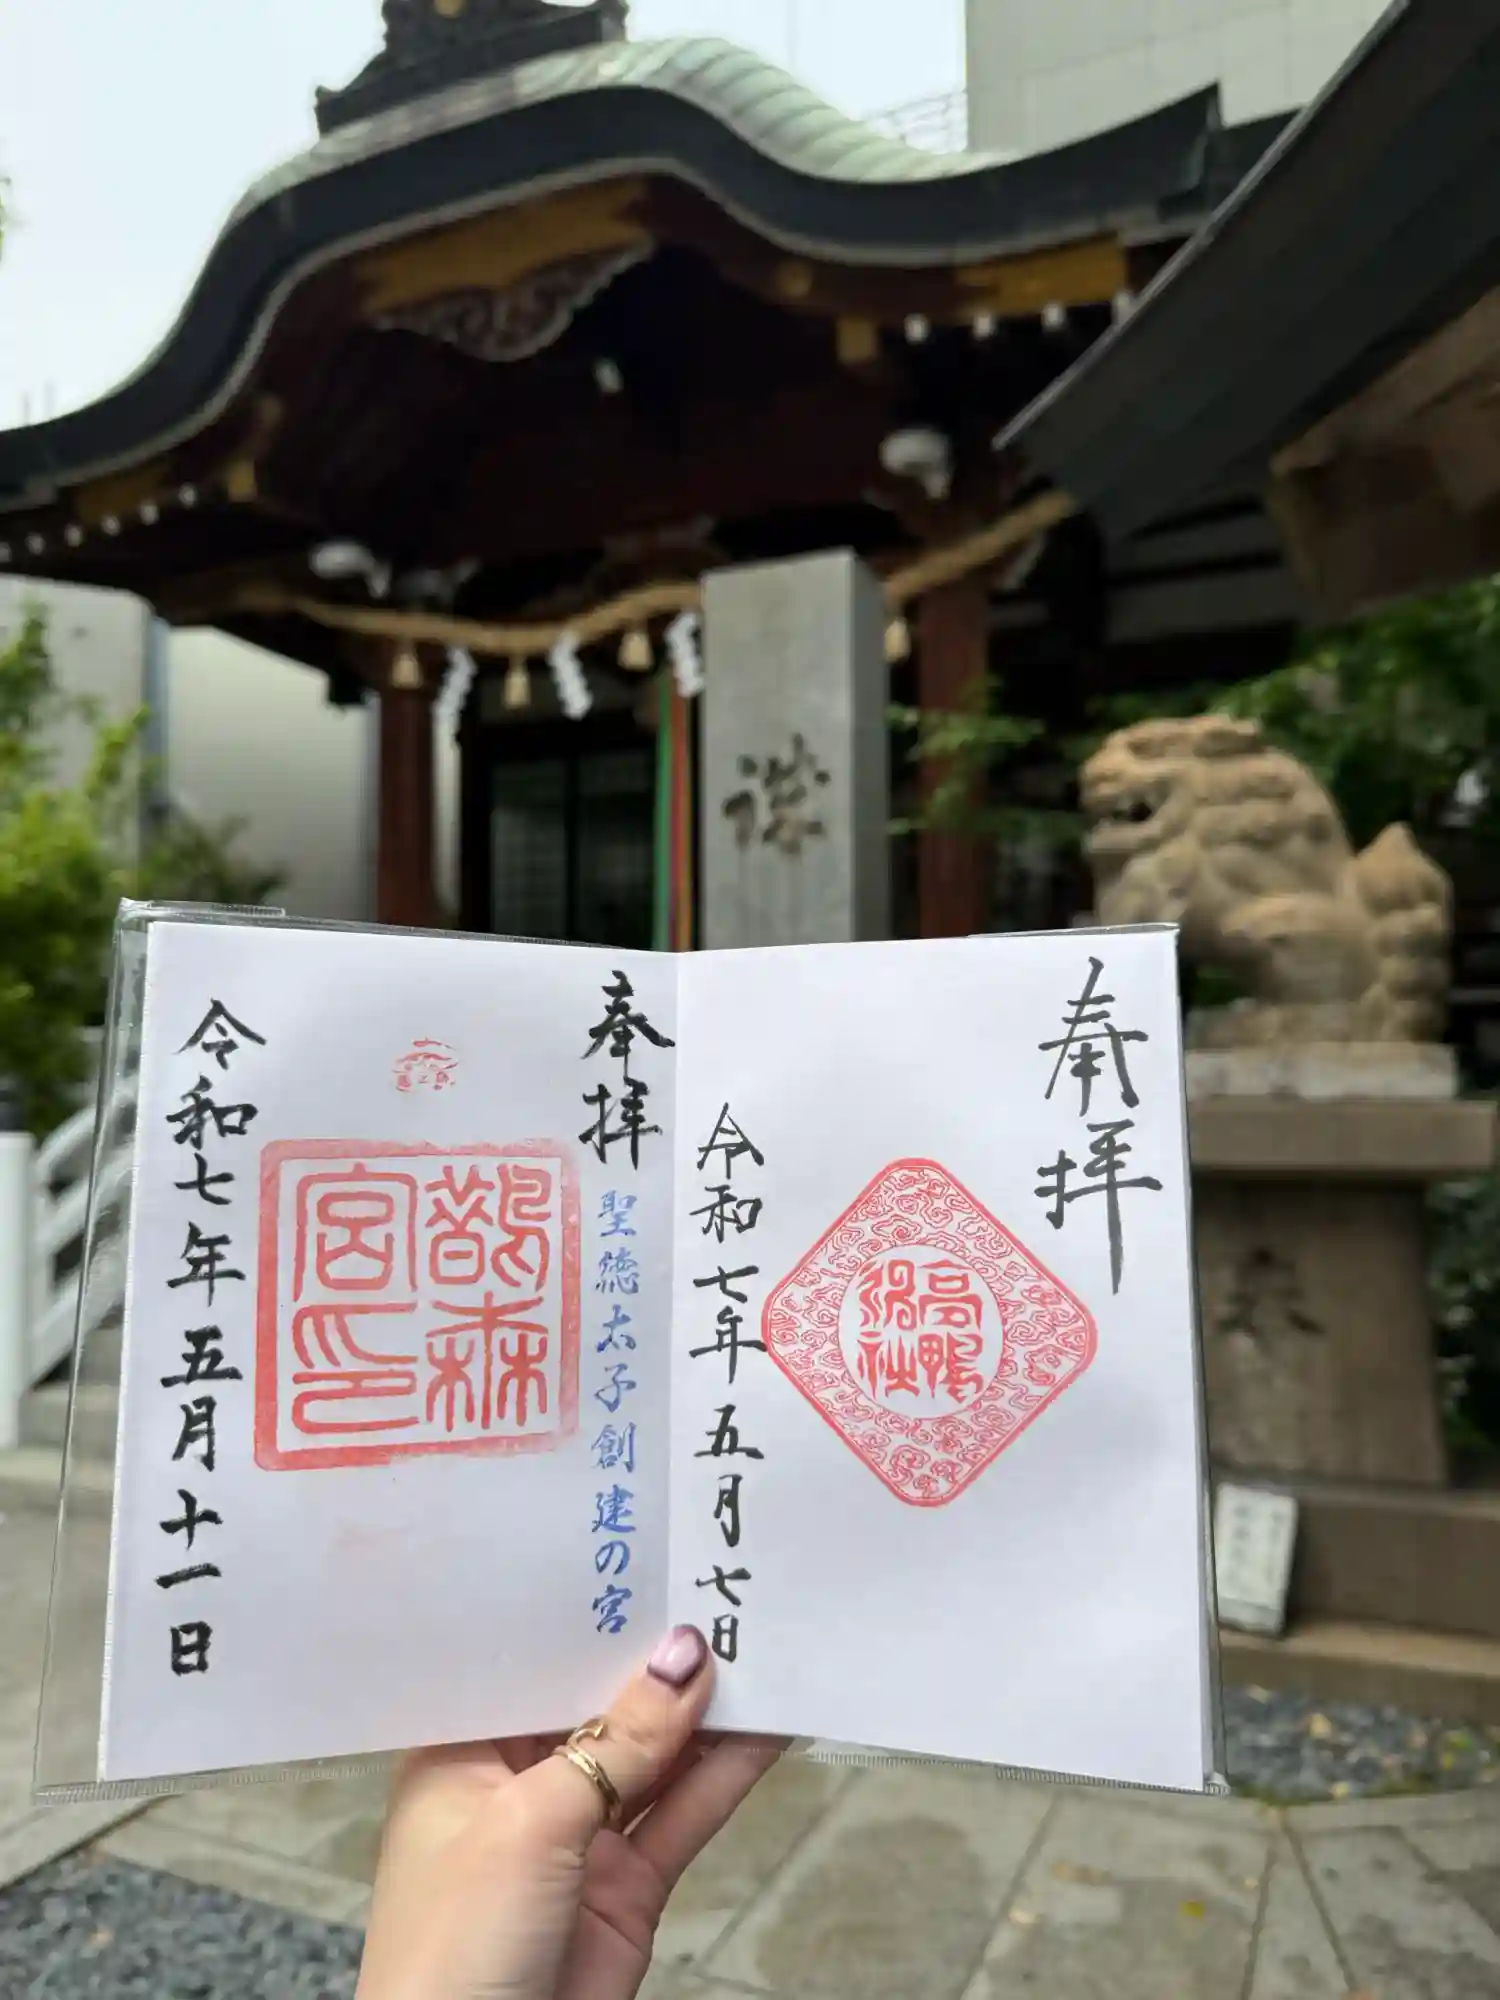 奉拝
高鴨
神社
令和七年五月七日
奉拝
聖徳太子創建の宮
鵲森
宮印
令和七年五月十一日